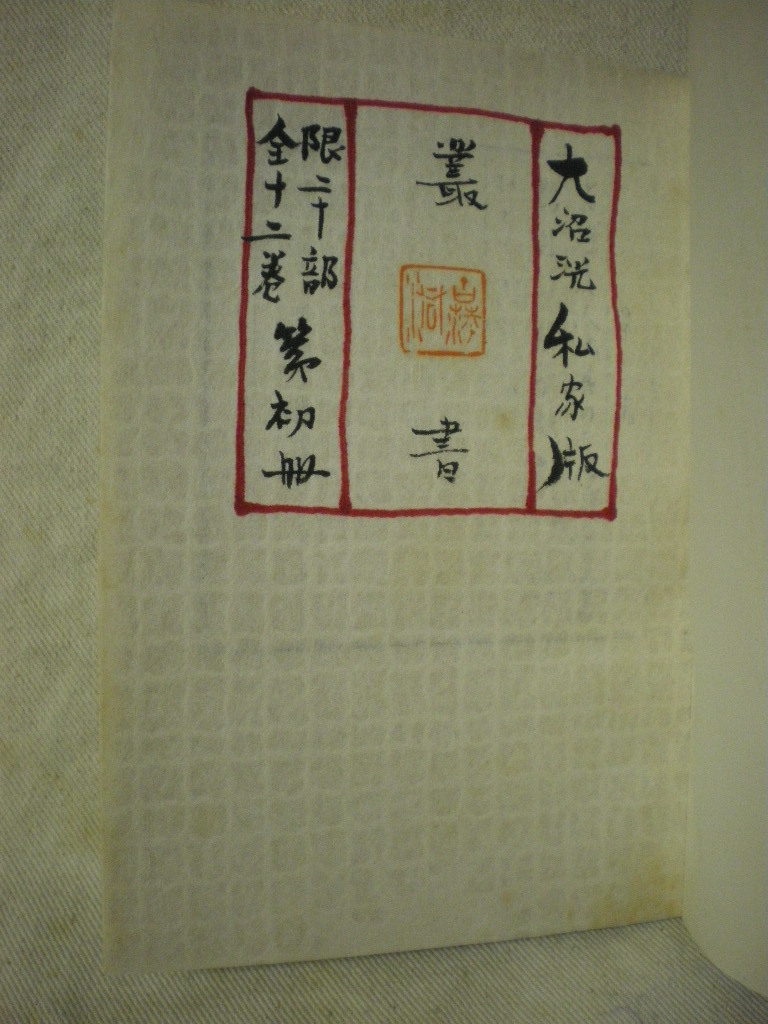 大沼洸私家版
叢
書
限二十部
全十二巻
第初冊